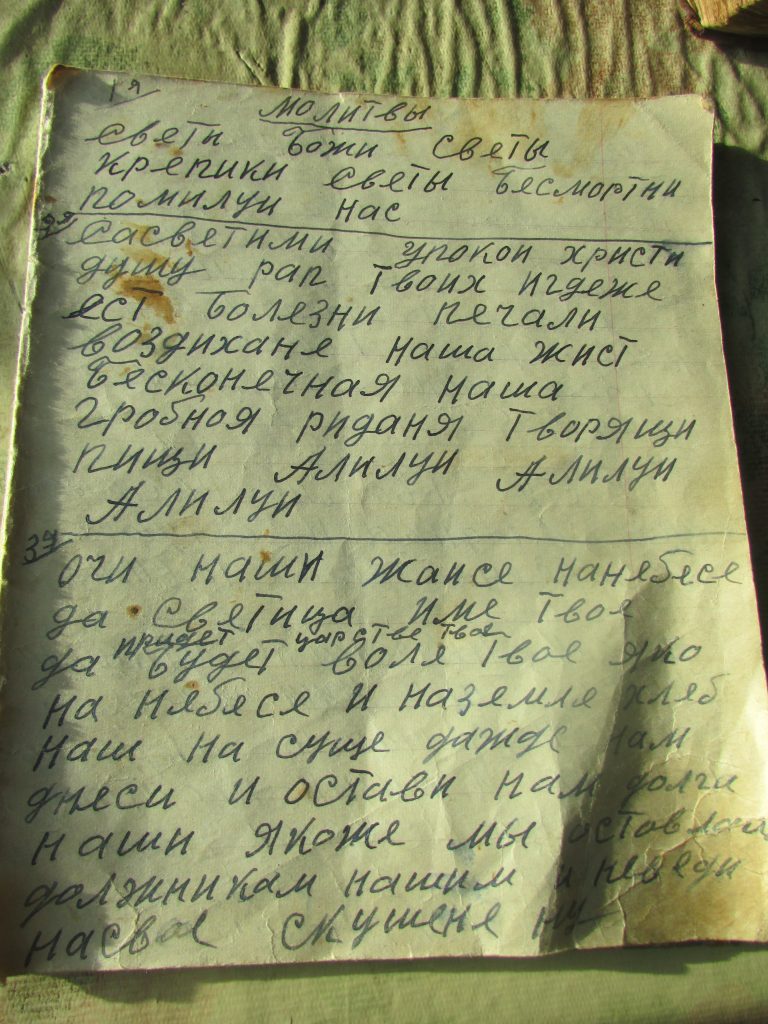 1я
молитвы
свети Божи светы
крепики светы бесмортни
помилуи нас
2я
Сасветими упокои христи
душу рап твоих игдеже
ест болезни печали
воздихане наша жист
бесконечная наша
гробноя риданя творящи
пищи Алилуи Алилуи
Алилуи
3я
очи наши жаисе нанебясе
да светица име твое
придет царстве твое
да будет воля твое яко
на нябесе и наземле хлеб
наш на суще дажде нам
днеси и остави нам долги
наши якоже мы
должникам нашим и неведи
скушене